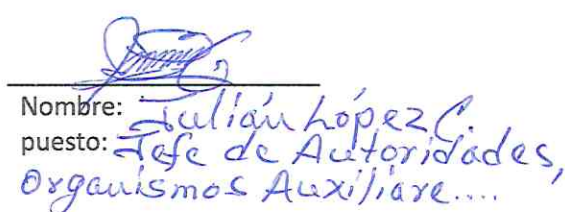 Nombre: Julián López C.
puesto: Jefe de Autoridades,
Organismos Auxiliare....